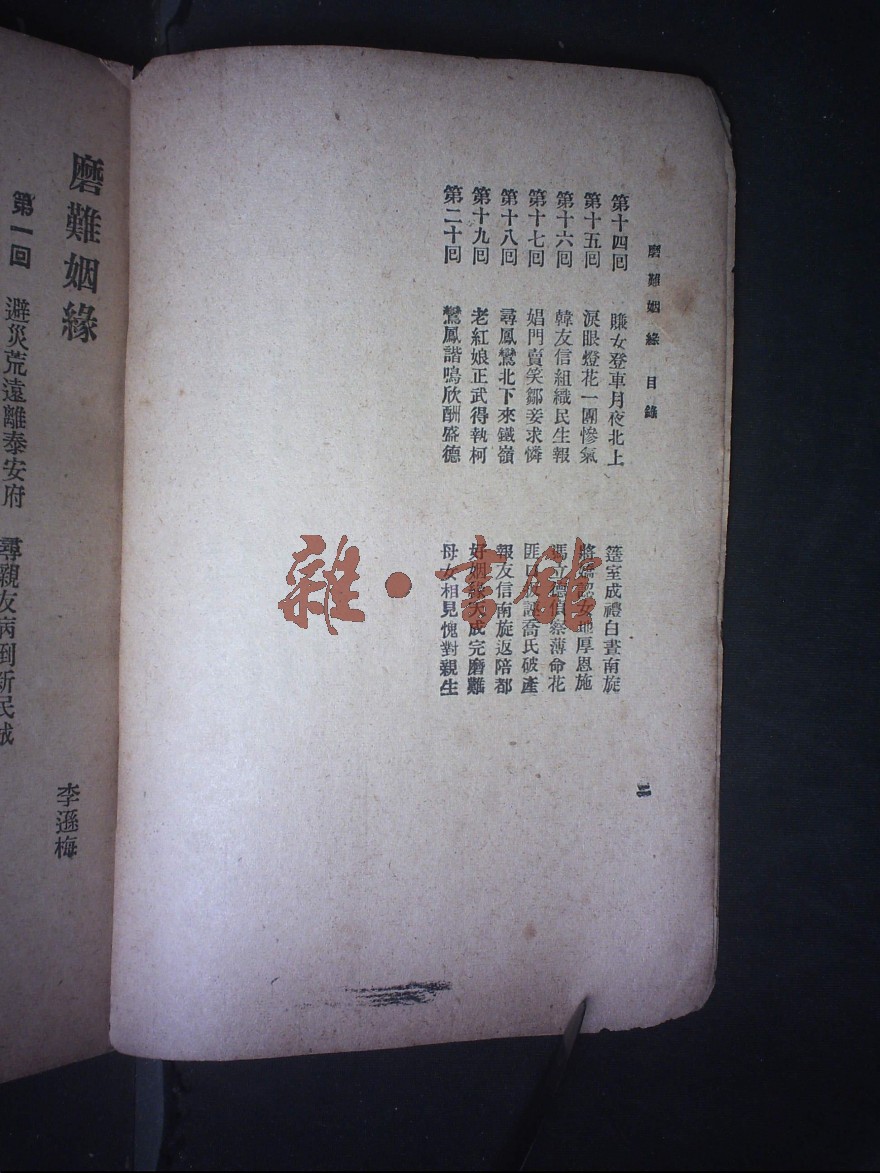 磨難姻緣 目錄
第十四回 賺女登車月夜北上 簉室成禮白晝南旋
第十五回 淚眼燈花一團慘氣 將 認女 厚恩施
第十六回 韓友信組織民生報 馮 德偵察薄命花
第十七回 娼門賣笑鄒妾求憐 匪口 喬氏破產
第十八回 尋鳳鸞北下來鐵嶺 報友信南旋返陪都
第十九回 老紅娘正武得執柯 好姻緣大成完磨難
第二十回 鸞鳳諧鳴欣酬盛德 母女相見愧對親生
二
磨難姻緣
李遜梅
第一回 避災荒遠離泰安府 尋親友病到新民城
雜·書館